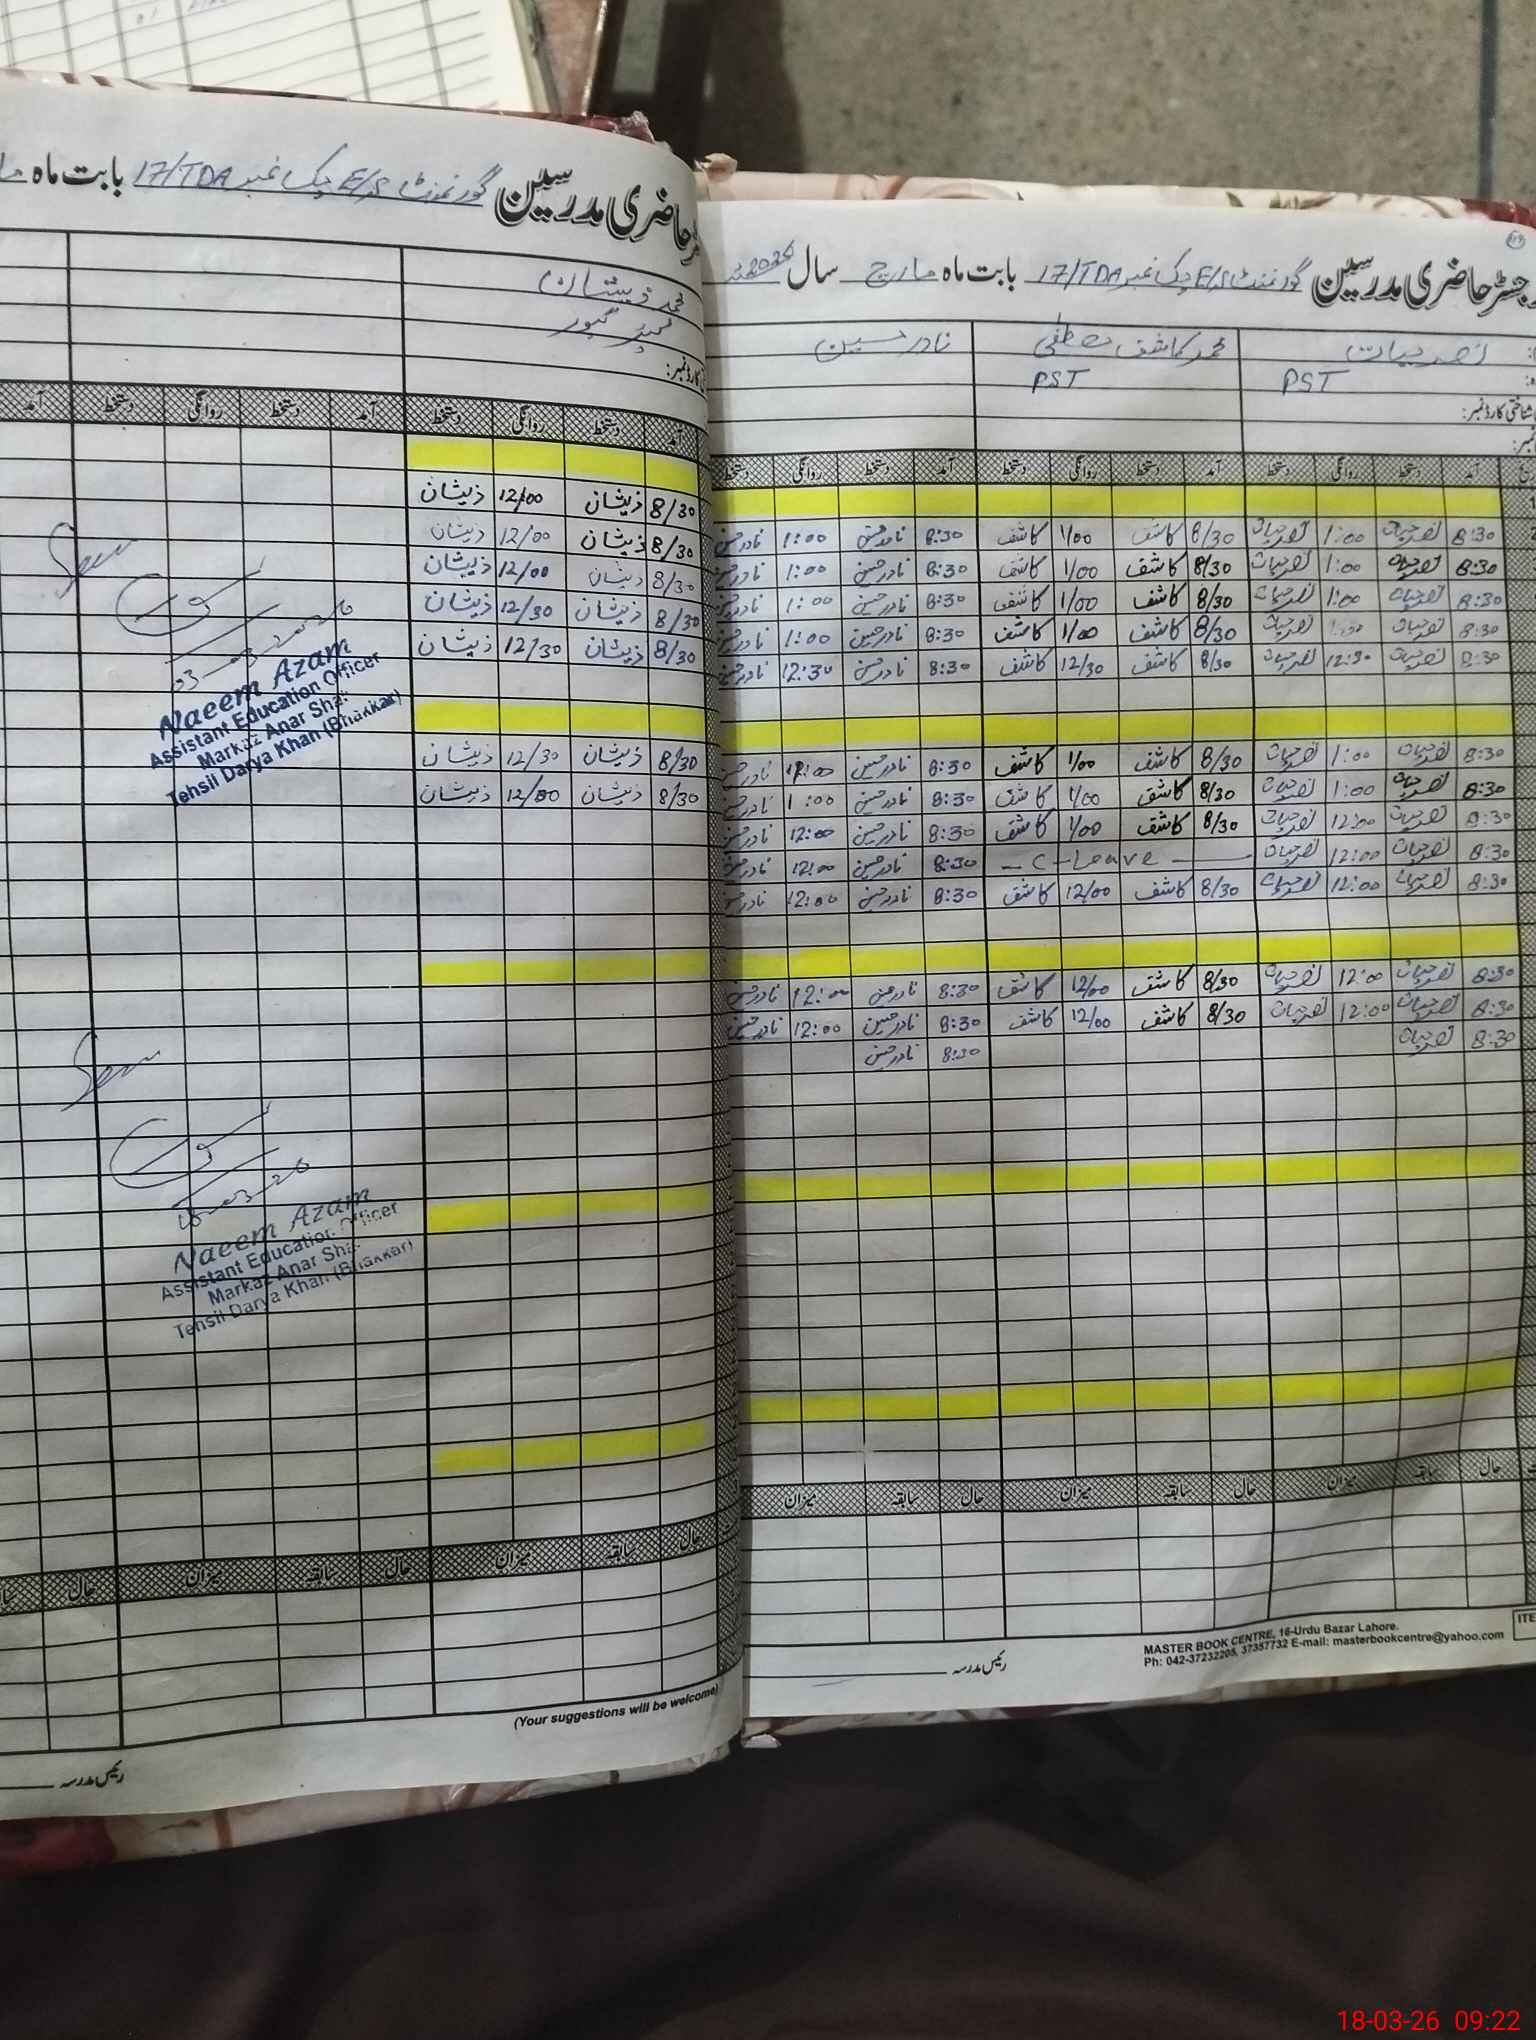 رجسٹر حاضری مدرسین گورنمنٹ E/S چک نمبر 17/TDA بابت ماہ مارچ سال 2026
نصر حیات
محمد کاشف مصطفی
نادر حسین
PST
PST
شناختی کارڈ نمبر:
آمد دستخط روانگی دستخط آمد دستخط روانگی دستخط آمد دستخط روانگی دستخط
8:30 نصر حیات 1:00 نصر حیات 8/30 کاشف 1/00 کاشف 8:30 نادر حسین 1:00 نادر حسین
8:30 نصر حیات 1:00 نصر حیات 8/30 کاشف 1/00 کاشف 8:30 نادر حسین 1:00 نادر حسین
8:30 نصر حیات 1:00 نصر حیات 8/30 کاشف 1/00 کاشف 8:30 نادر حسین 1:00 نادر حسین
8:30 نصر حیات نصر حیات 8/30 کاشف 1/00 کاشف 8:30 نادر حسین 1:00 نادر حسین
8:30 نصر حیات 12:30 نصر حیات 8/30 کاشف 12/30 کاشف 8:30 نادر حسین 12:30 نادر حسین
8:30 نصر حیات 1:00 نصر حیات 8/30 کاشف 1/00 کاشف 8:30 نادر حسین نادر حسین
8:30 نصر حیات 1:00 نصر حیات 8/30 کاشف 1/00 کاشف 8:30 نادر حسین 1:00 نادر حسین
8:30 نصر حیات 12:00 نصر حیات 8/30 کاشف 1/00 کاشف 8:30 نادر حسین 12:00 نادر حسین
8:30 نصر حیات 12:00 نصر حیات — C - Leave — 8:30 نادر حسین 12:00 نادر حسین
8:30 نصر حیات 12:00 نصر حیات 8/30 کاشف 12/00 کاشف 8:30 نادر حسین 12:00 نادر حسین
8:30 نصر حیات 12:00 نصر حیات 8/30 کاشف 12/00 کاشف 8:30 نادر حسین 12:00 نادر حسین
8:30 نصر حیات 12:00 نصر حیات 8/30 کاشف 12/00 کاشف 8:30 نادر حسین 12:00 نادر حسین
8:30 نصر حیات 8:30 نادر حسین
حال سابقہ میزان حال سابقہ میزان حال سابقہ میزان
رئیس مدرسہ
MASTER BOOK CENTRE, 16-Urdu Bazar Lahore.
Ph: 042-37232205, 37357732 E-mail: masterbookcentre@yahoo.com
ITE
حاضری مدرسین گورنمنٹ E/S چک نمبر 17/TDA بابت ماہ
محمد ذیشان
کارڈ نمبر:
آمد دستخط روانگی دستخط آمد دستخط روانگی دستخط آمد
8/30 ذیشان 12/00 ذیشان
8/30 ذیشان 12/00 ذیشان
8/30 ذیشان 12/00 ذیشان
8/30 ذیشان 12/30 ذیشان
8/30 ذیشان 12/30 ذیشان
8/30 ذیشان 12/30 ذیشان
8/30 ذیشان 12/00 ذیشان
Naeem Azam
Assistant Education Officer
Markaz Anar Sha
Tehsil Darya Khan (Bhakkar)
Naeem Azam
Assistant Education Officer
Markaz Anar Sha
Tehsil Darya Khan (Bhakkar)
حال سابقہ میزان حال سابقہ میزان حال
(Your suggestions will be welcome)
رئیس مدرسہ
18-03-26 09:22